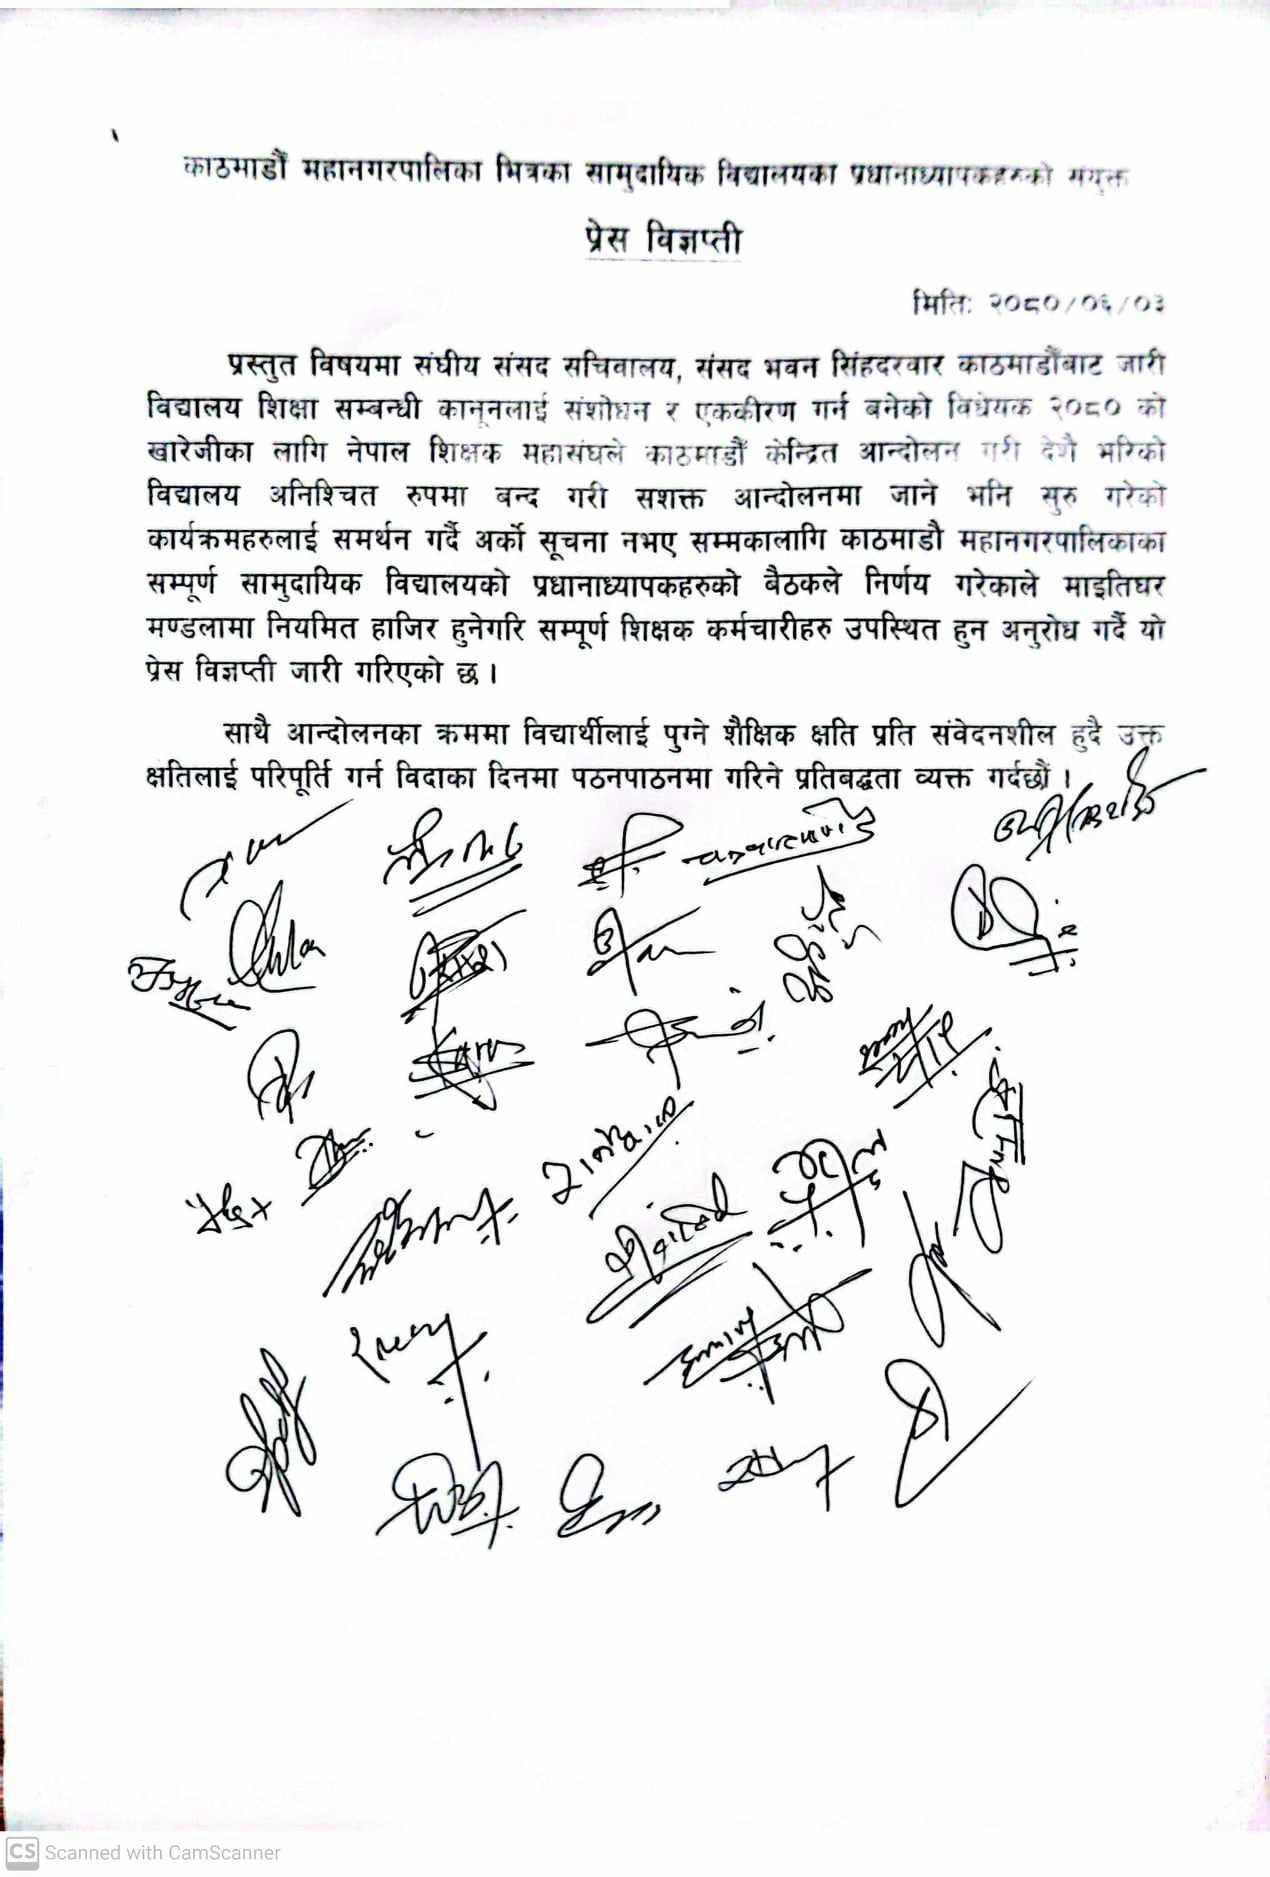 काठमाडौं महानगरपालिका भित्रका सामुदायिक विद्यालयका प्रधानाध्यापकहरुको संयुक्त
प्रेस विज्ञप्ती
मितिः २०८०/०६/०३
प्रस्तुत विषयमा संघीय संसद सचिवालय, संसद भवन सिंहदरवार काठमाडौंबाट जारी
विद्यालय शिक्षा सम्बन्धी कानूनलाई संशोधन र एककीरण गर्न बनेको विधेयक २०८० को
खारेजीका लागि नेपाल शिक्षक महासंघले काठमाडौं केन्द्रित आन्दोलन गरी देशै भरिको
विद्यालय अनिश्चित रुपमा बन्द गरी सशक्त आन्दोलनमा जाने भनि सुरु गरेको
कार्यक्रमहरुलाई समर्थन गर्दै अर्को सूचना नभए सम्मकालागि काठमाडौ महानगरपालिकाका
सम्पूर्ण सामुदायिक विद्यालयको प्रधानाध्यापकहरुको बैठकले निर्णय गरेकाले माइतिघर
मण्डलामा नियमित हाजिर हुनेगरि सम्पूर्ण शिक्षक कर्मचारीहरु उपस्थित हुन अनुरोध गर्दै यो
प्रेस विज्ञप्ती जारी गरिएको छ ।
साथै आन्दोलनका क्रममा विद्यार्थीलाई पुग्ने शैक्षिक क्षति प्रति संवेदनशील हुदै उक्त
क्षतिलाई परिपूर्ति गर्न विदाका दिनमा पठनपाठनमा गरिने प्रतिबद्धता व्यक्त गर्दछौं ।
CS Scanned with CamScanner